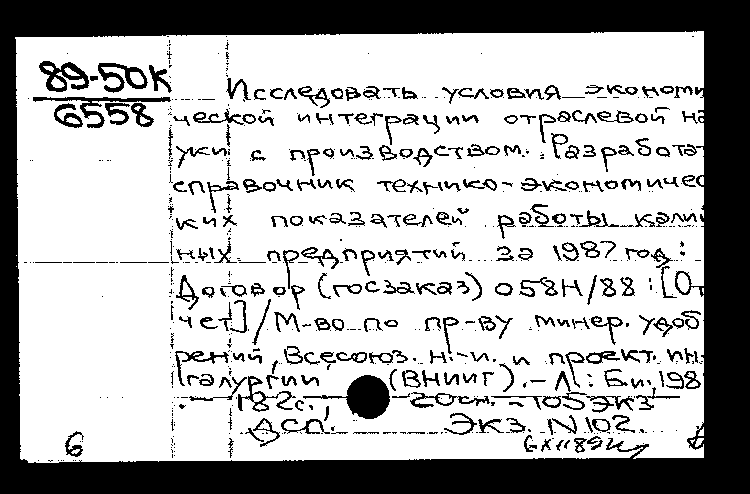 89-50К
6558
Исследовать условия экономи
ческой интеграции отраслевой на
уки с производством. Разработат
справочник технико-экономичес
ких показателей работы калий
ных предприятий за 1987 год:
Договор (госзаказ) 058Н/88: [От
чет] / М-во по пр-ву минер. удоб
рений, Всесоюз. н.-и. и проект. ин-
галургии (ВНИИГ). - Л.: Б.и., 198
. - 182с.; 20см. - 105 экз
ДСП. Экз. N102.
6